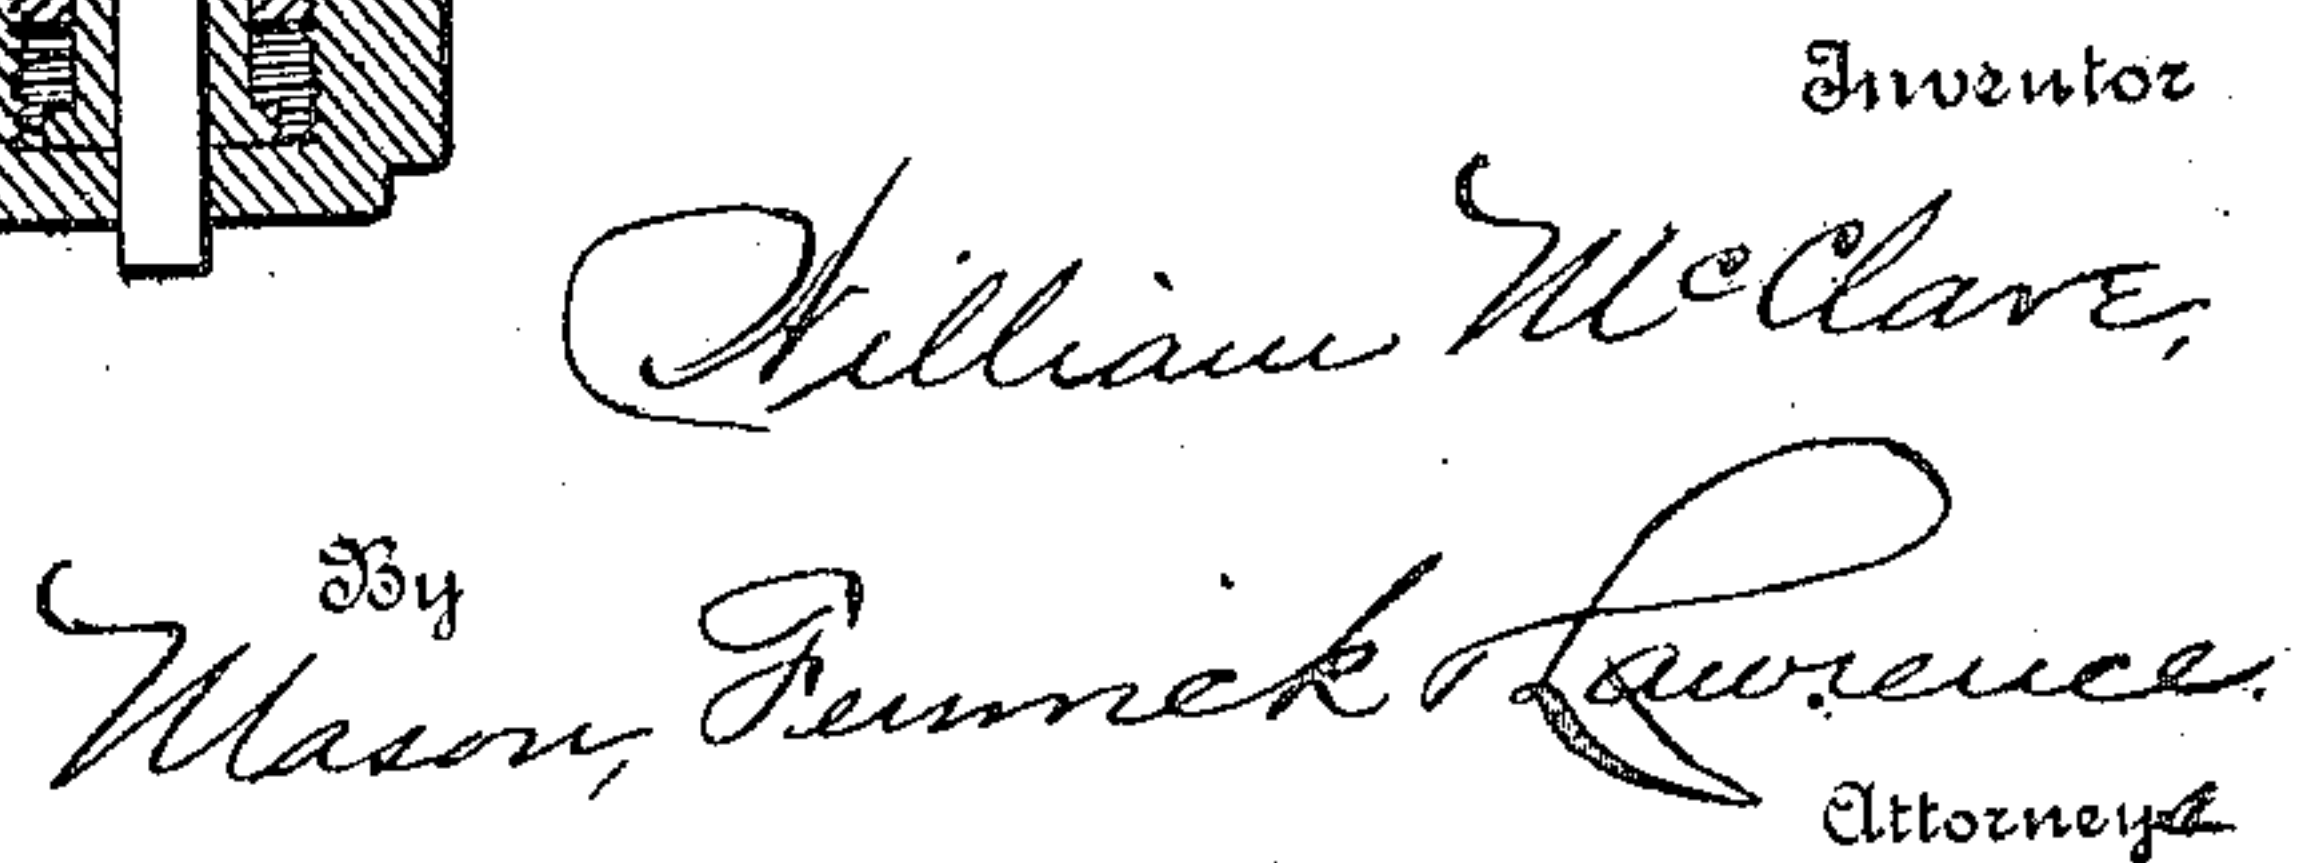 Inventor
William McClave,
By
Mason, Fenwick & Lawrence.
Attorneys